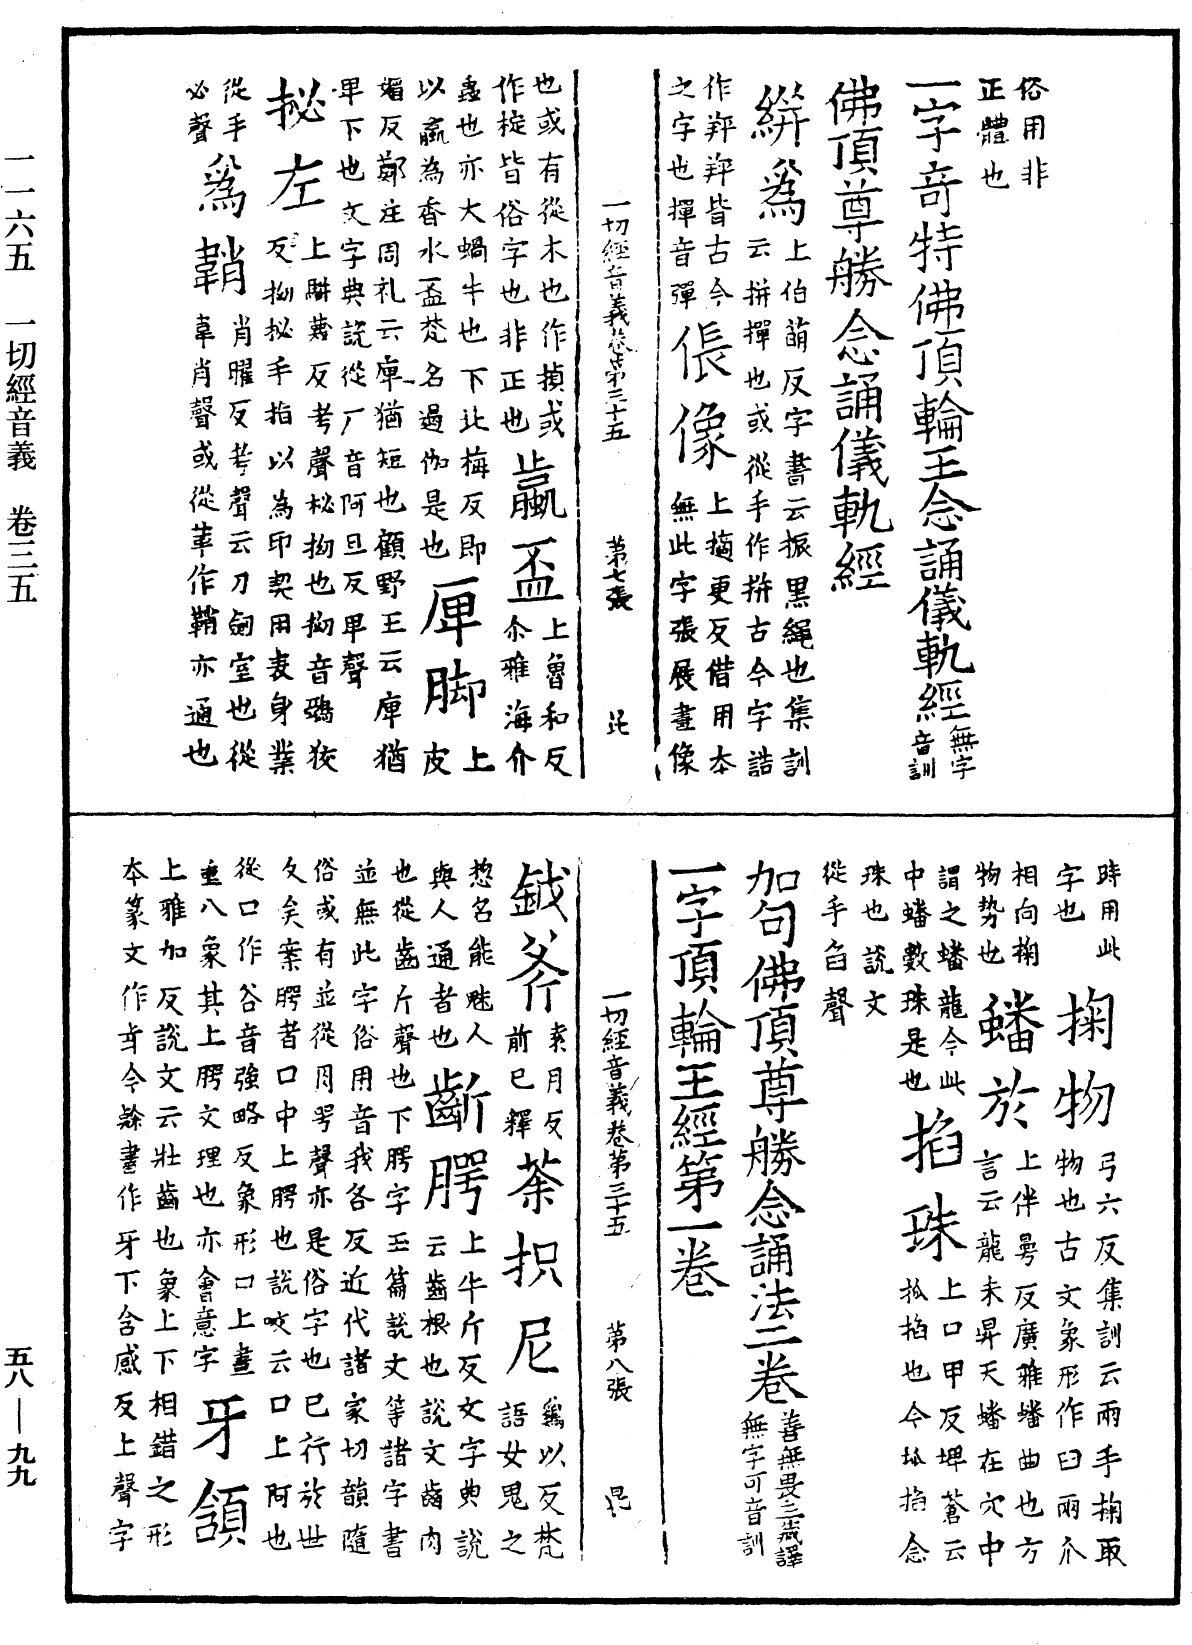 俗用非
正體也
一字奇特佛頂輪王念誦儀軌經無字
音訓
佛頂尊勝念誦儀軌經
絣為上伯萠反字書云振黑繩也集訓
云拼撣也或從手作拼古今字誥
作羿羿皆古今
之字也撣音彈
倀像上擿更反借用本
無此字張展畫像
一切經音義卷第三十五 第七張
也或有從木也作楨或
作椗皆俗字也非正也
蠃盃上魯和反
尒雅海介
蟲也亦大蝸牛也下北梅反即
以蠃為香水盃梵名遏伽是也
厙脚上
皮
媚反鄭注周礼云庳猶短也顧野王云庳猶
卑下也文字典說從厂音阿旦反卑聲
挱左上駢蔑反考聲柲拗也拗音鵶狡
反拗挱手指以為印契用表身業
從手
必聲
為鞘肖曜反考聲云刀劒室也從
韋肖聲或從革作鞘亦通也
時用此
字也
掬物弓六反集訓云兩手掬取
物也古文象形作臼兩爪
相向掬
物势也
蟠於上伴曼反廣雅蟠曲也方
言云龍未昇天蟠在穴中
謂之蟠龍今此
中蟠數珠是也
掐珠上口甲反埤蒼云
抓掐也今抓掐念
珠也說文
從手臽聲
加句佛頂尊勝念誦法二卷善無畏三藏譯
無字可音訓
一字頂輪王經第一卷
一切經音義卷第三十五 第八張
鉞斧袁月反
前已釋
荼枳尼鷄以反梵
語女鬼之
惣名能魅人
與人通者也
齗腭上牛斤反文字典說
云齒根也說文齒肉
也從齒斤聲也下腭字玉篇說文等諸字書
並無此字俗用音我各反近代諸家切韻隨
俗或有並從月咢聲亦是俗字也已行於世
久矣案腭者口中上腭也說文云口上阿也
從口作谷音強略反象形口上畫
重八象其上腭文理也亦會意字
牙頷
上雅加反說文云壯齒也象上下相錯之形
本篆文作㸦今隸書作牙下含感反上聲字
一一六五 一切經音義 卷三五
五八—九九